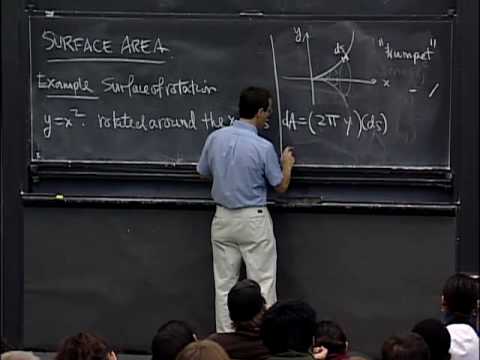 SURFACE AREA.
Example Surface of rotation
y=x² rotated around the x
y
ds
x
"trumpet"
dA=(2π y)(ds)